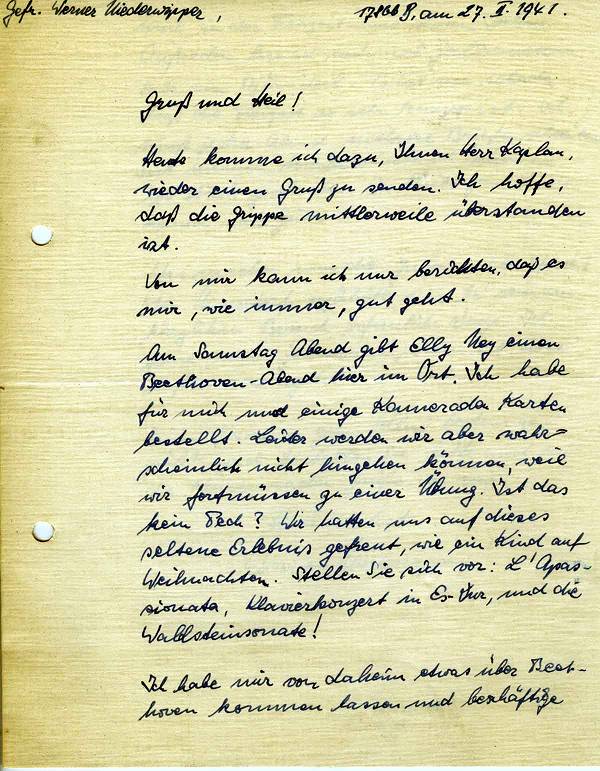 Gefr. Werner Niederwipper, 17866 B, am 27. II. 1941.
Gruß und Heil!
Heute komme ich dazu, Ihnen Herr Kaplan,
wieder einen Gruß zu senden. Ich hoffe,
daß die Grippe mittlerweile überstanden
ist.
Von mir kann ich nur berichten, daß es
mir, wie immer, gut geht.
Am Samstag Abend gibt Elly Ney einen
Beethoven-Abend hier im Ort. Ich habe
für mich und einige Kameraden Karten
bestellt. Leider werden wir aber wahr-
scheinlich nicht hingehen können, weil
wir fortmüssen zu einer Übung. Ist das
kein Pech? Wir hatten uns auf dieses
seltene Erlebnis gefreut, wie ein Kind auf
Weihnachten. Stellen Sie sich vor: L'Apas-
sionata, Klavierkonzert in Es-Dur, und die
Waldsteinsonate!
Ich habe mir von daheim etwas über Beet-
hoven kommen lassen und beschäftige